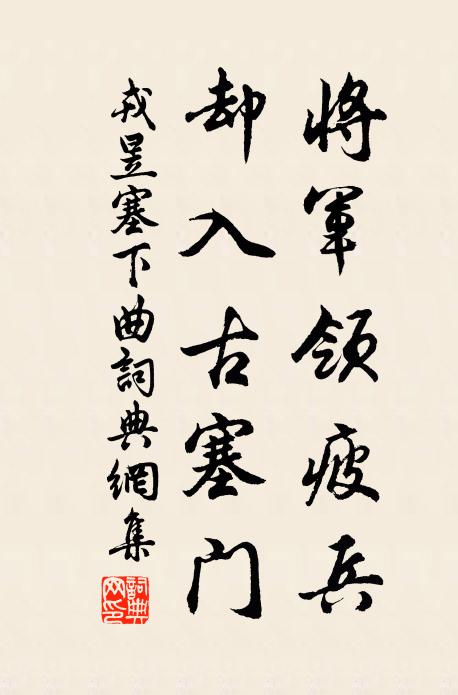 將軍領疲兵
却入古塞门
戎昱塞下曲詞典網集
詞典网印